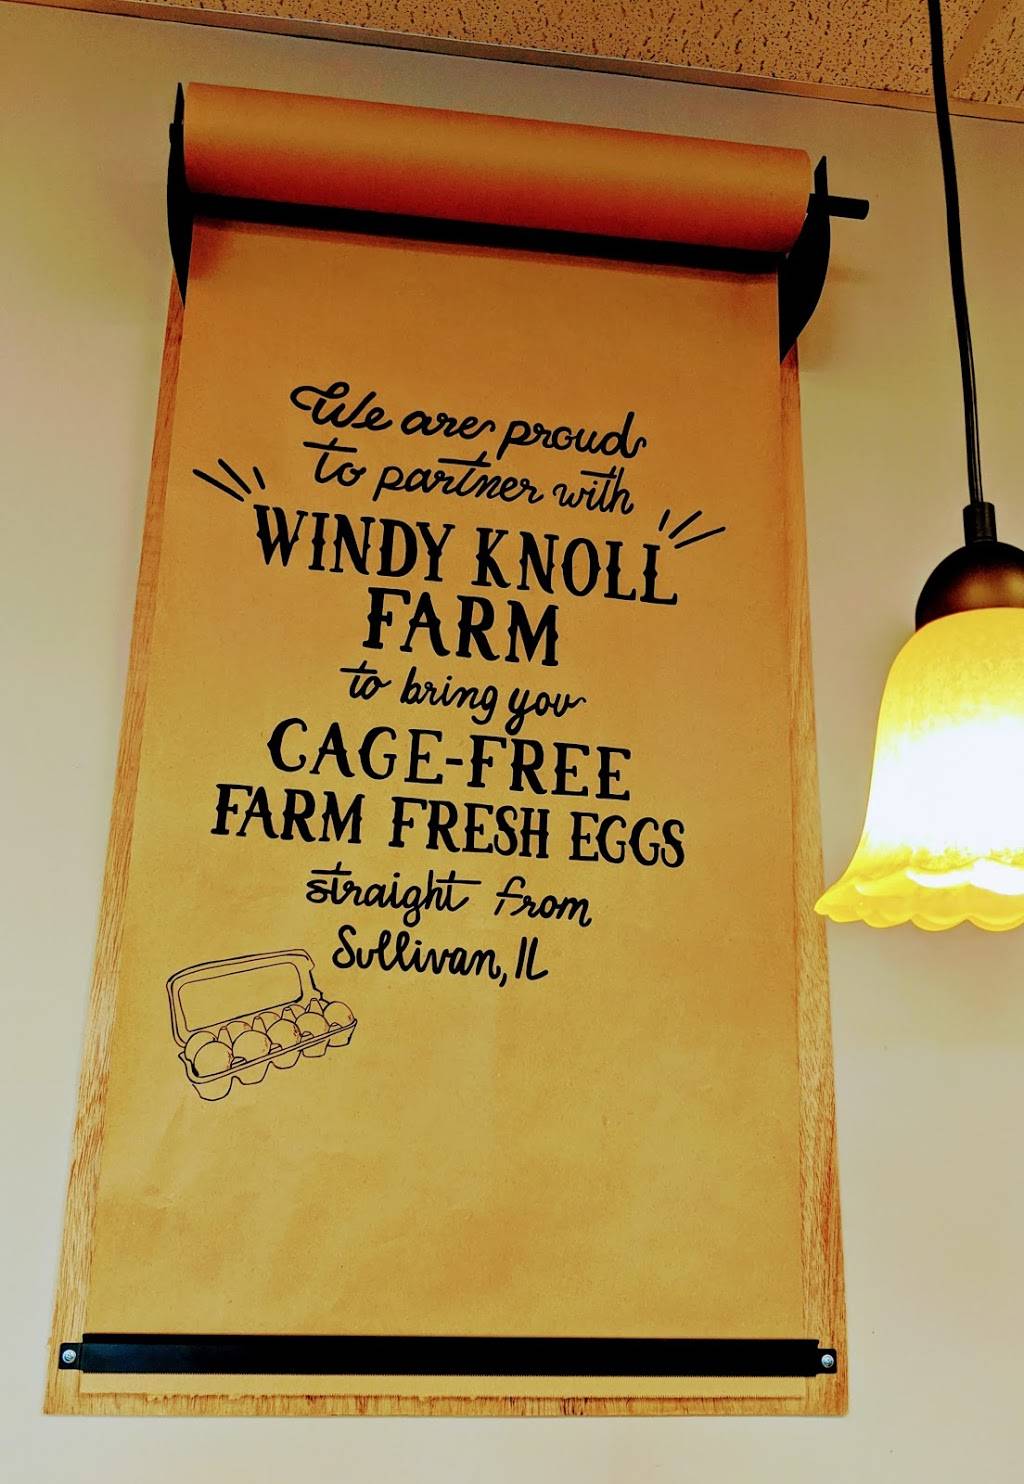 We are proud
to partner with
WINDY KNOLL
FARM
to bring you
CAGE-FREE
FARM FRESH EGGS
straight from
Sullivan, IL